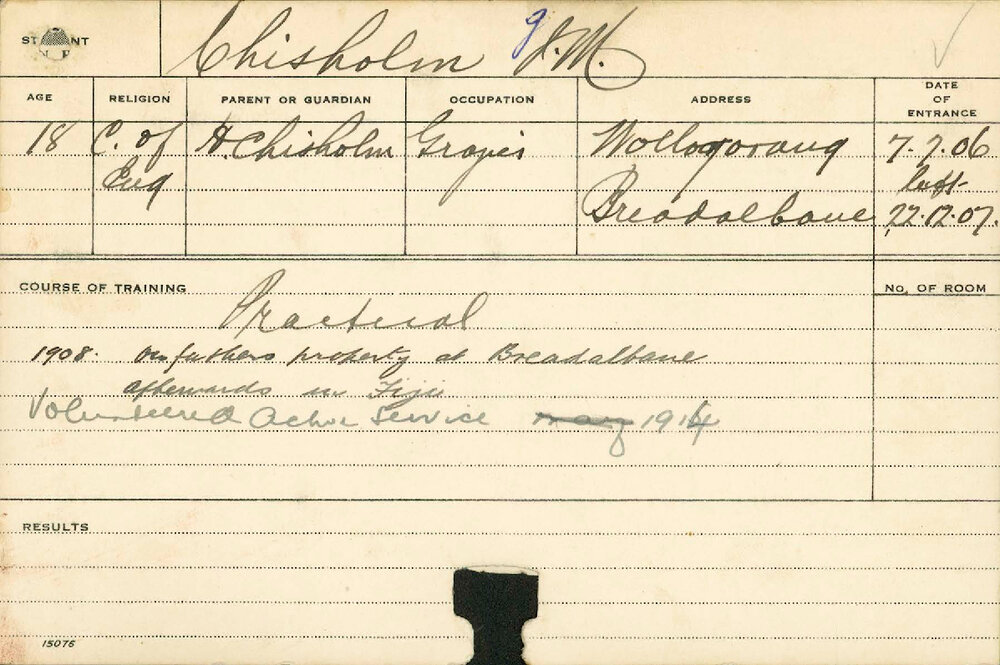 Chisholm J.M.
AGE RELIGION PARENT OR GUARDIAN OCCUPATION ADDRESS DATE OF ENTRANCE
18 C. of H. Chisholm Grazier Wollogorang 7.7.06
Eng left
Breadalbane 22.12.07.
COURSE OF TRAINING
No. OF ROOM
Practical
1908. on fathers property at Breadalbane
afterwards in Fiji
Volunteered Active Service 1914
RESULTS
15076